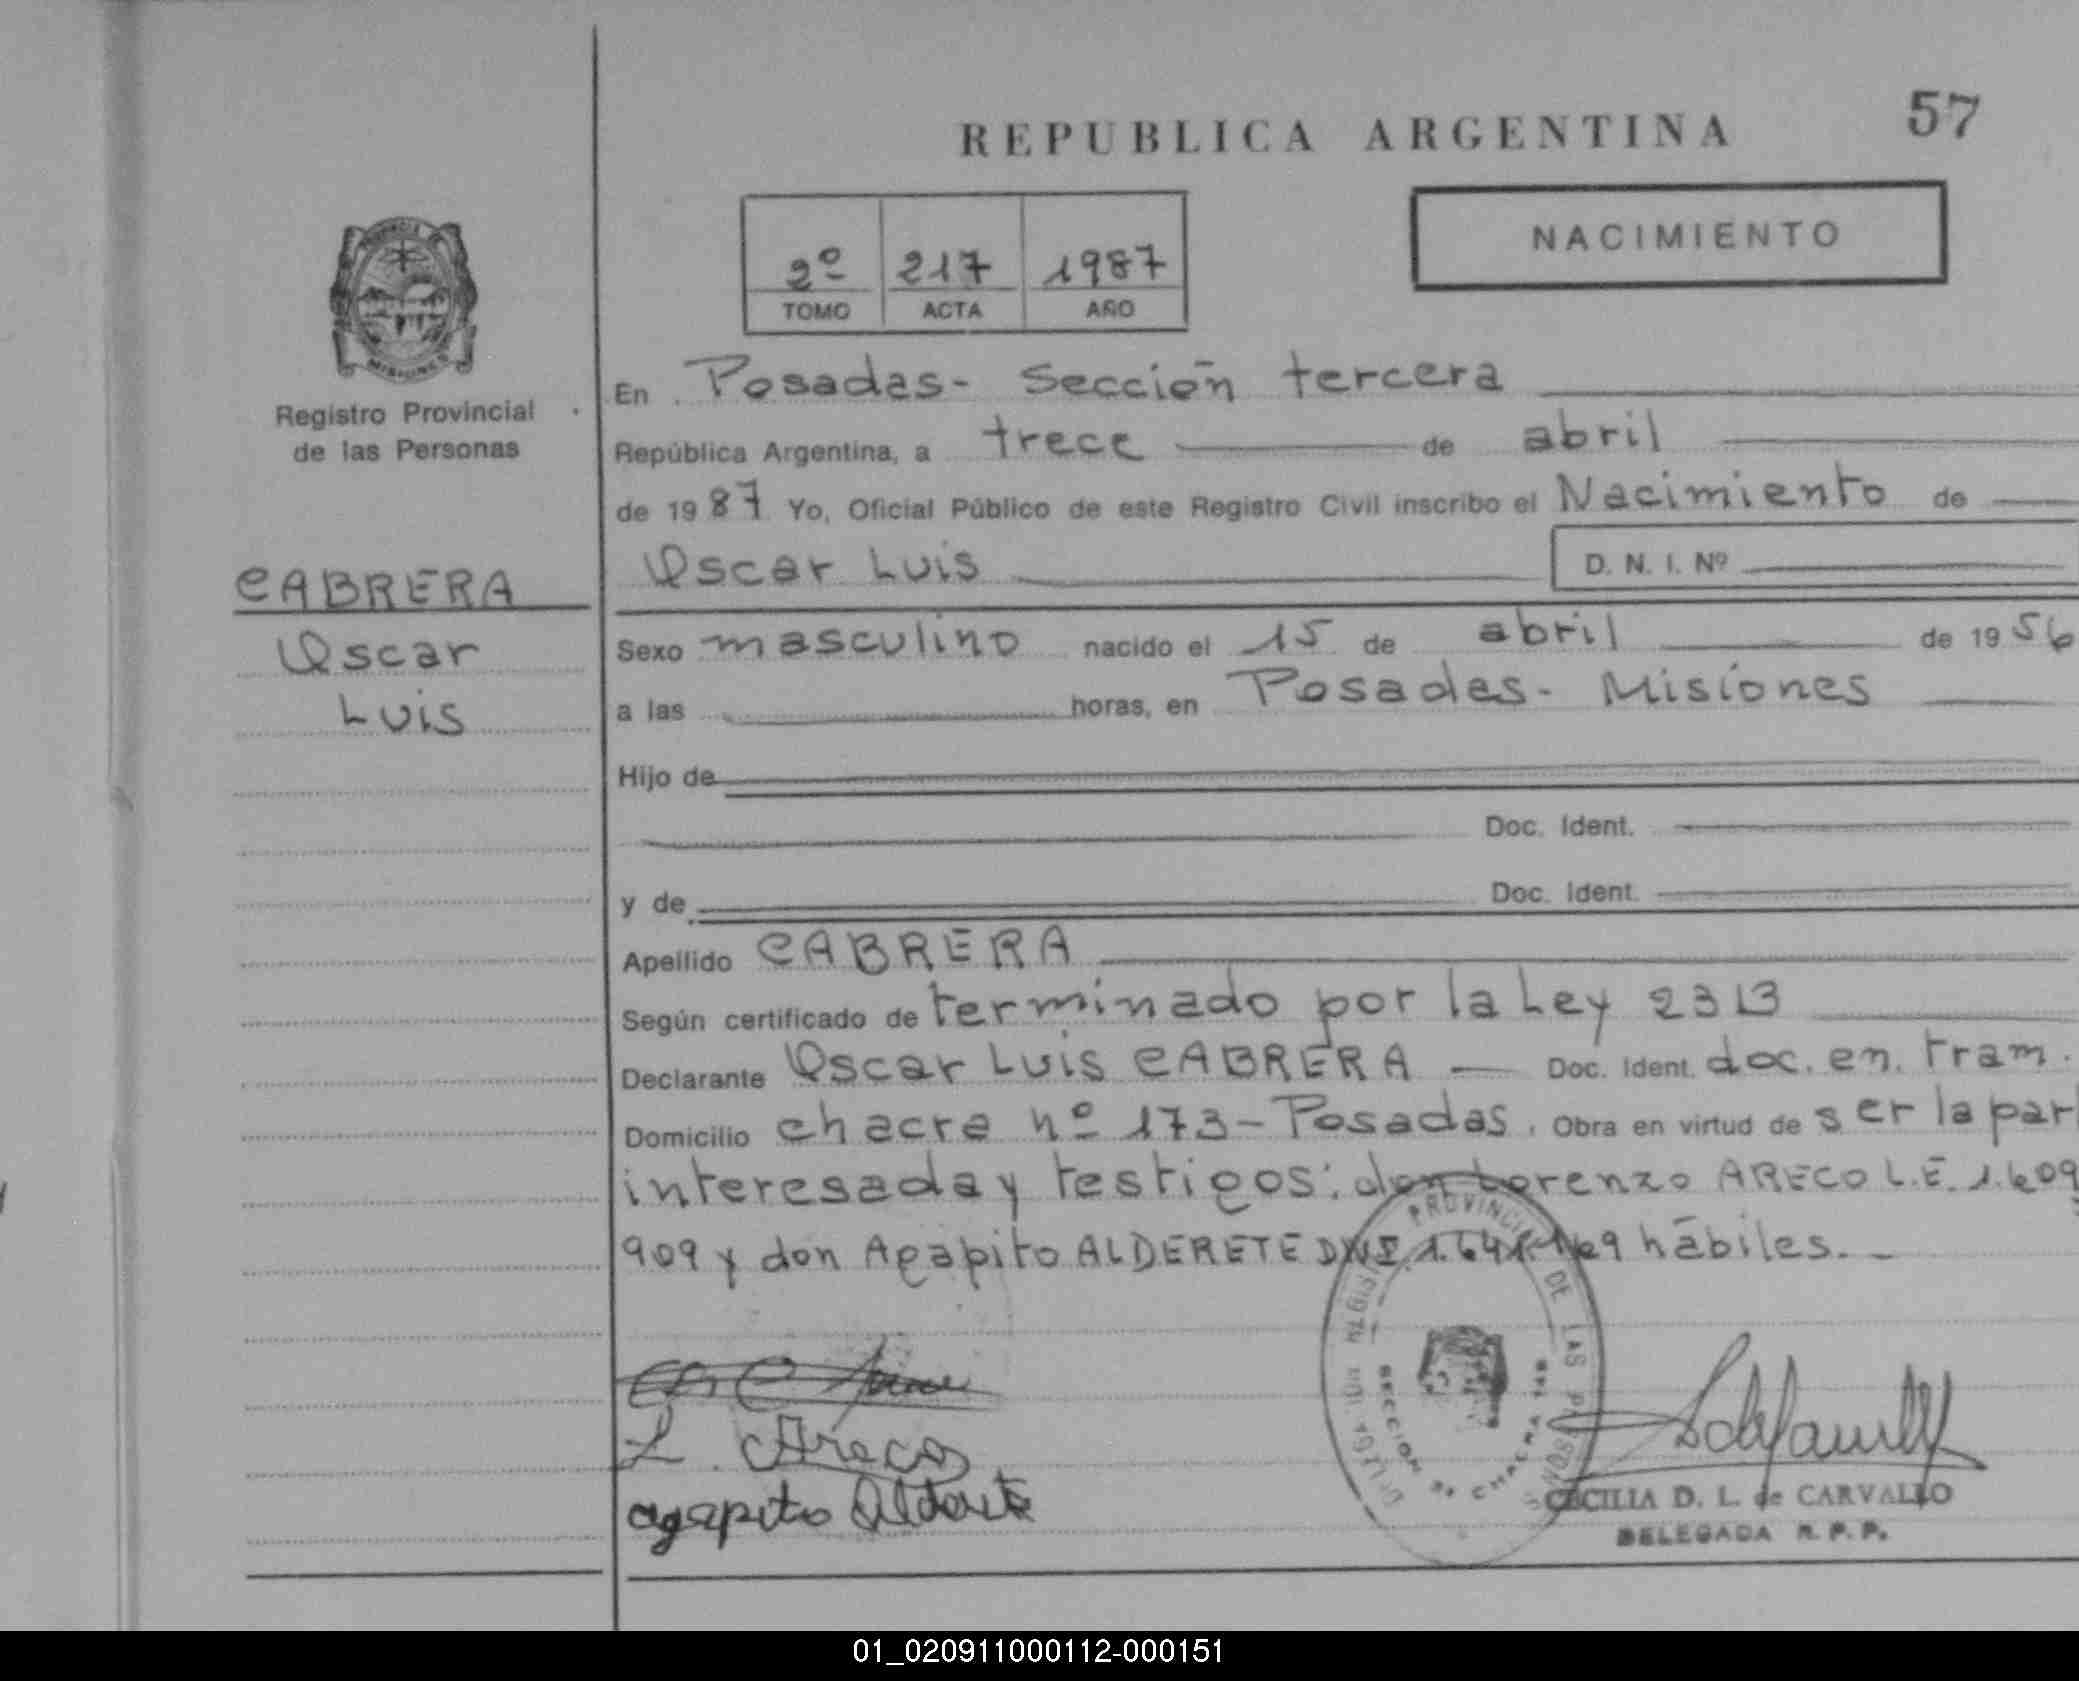 REPUBLICA ARGENTINA
57
NACIMIENTO
2º 217 1987
TOMO ACTA AÑO
Registro Provincial
de las Personas
CABRERA
Oscar
Luis
En Posadas- Sección tercera
República Argentina, a trece de abril
de 1987 Yo, Oficial Público de este Registro Civil inscribo el Nacimiento de
Oscar Luis D. N. I. Nº
Sexo masculino nacido el 15 de abril de 1956
a las horas, en Posadas- Misiones
Hijo de
Doc. Ident.
y de Doc. Ident.
Apellido CABRERA
Según certificado de terminado por la Ley 2313
Declarante Oscar Luis CABRERA Doc. Ident. doc. en. tram.
Domicilio chacra nº 173-Posadas. Obra en virtud de ser la par
interesada y testigos: don Lorenzo ARECO L.E. 1.609
909 y don Agapito ALDERETE DNI hábiles.-
L. Areco
agapito Alderete
PROVINCIAL DE LAS PERSONAS
CECILIA D. L. de CARVALLO
DELEGADA R. P. P.
01_020911000112-000151